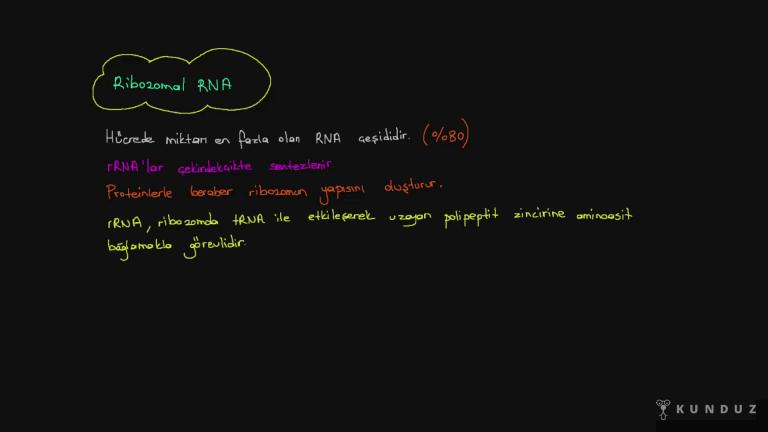 Ribozomal RNA
Hücrede miktarı en fazla olan RNA çeşididir. (%80)
rRNA'lar çekirdekçikte sentezlenir.
Proteinlerle beraber ribozomun yapısını oluşturur.
rRNA, ribozomda tRNA ile etkileşerek uzayan polipeptit zincirine aminoasit
bağlamakla görevlidir.
KUNDUZ